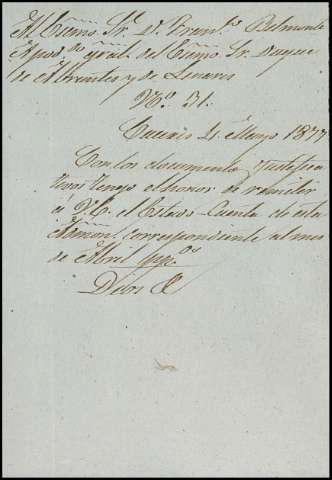 Al Excmo. Sr. D. Franco. Belmonte
Apodo. gral. del Excmo. Sr. Duque
de Abrantes y de Linares
No. 31.
Mayo 1877
Con los documentos justifica
tivos tengo el honor de remitir
á V. E. el Estado-Cuenta de esta
Admon. correspondiente al mes
de Abril ppo.
Dios &